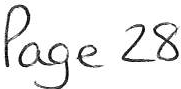 Page 28